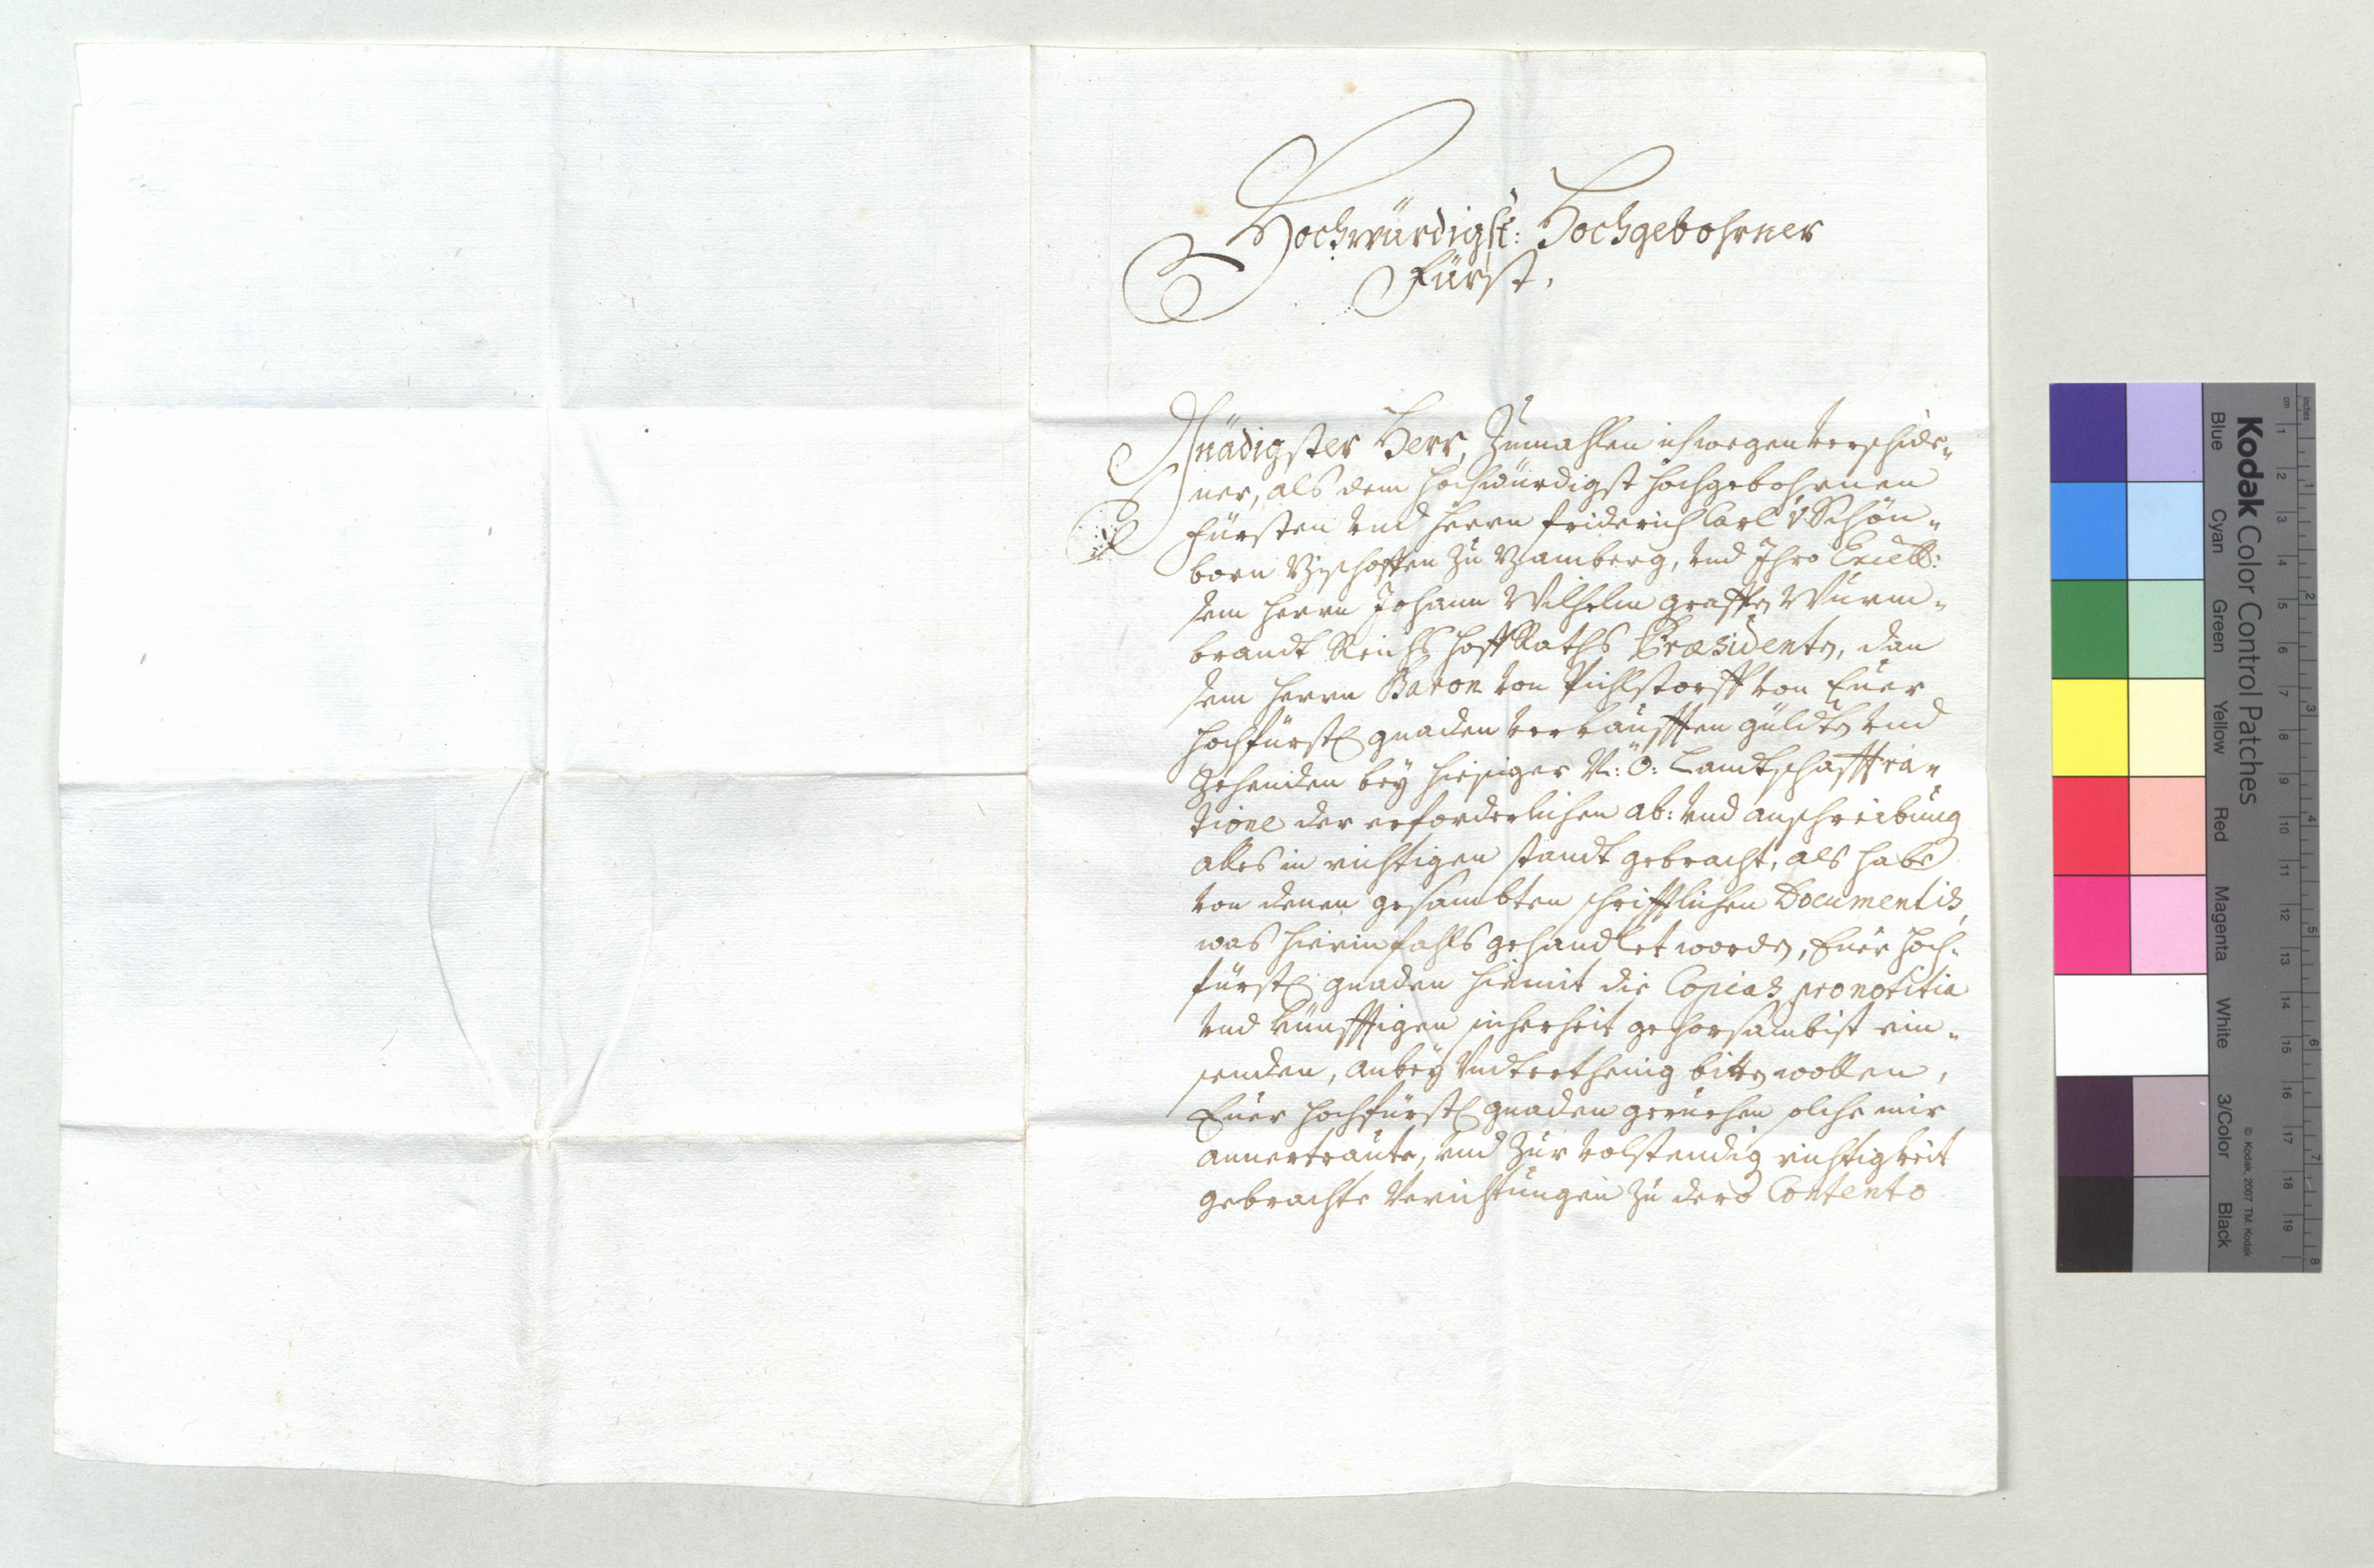 Hochwürdigst: Hochgebohrner
Fürst,
Gnädigster Herr, Zumahlen ich wegen verschide-
ner, als dem hochwürdigst hochgebohrnen
Fürsten vnd herrn friderich Carl v: Schön-
born Bischoffen zu Bamberg, vnd Ihro Excell:
dem herrn Johann Wilhelm graffen Wurm-
brandt Reichs hoff Raths Præsidenten, dan
dem herrn Baron von Pichlstorff von Euer
hochfürstl gnaden verkaufften güldten vnd
Zehenden bey hiesiger N: Ö: Landtschafft ra-
tione der erforderlichen ab: vnd anschreibung
alles in richtigen standt gebracht, als habe
von denen gesambten schrifftlichen Documentis,
was hierinfahls gehandlet worden, Euer hoch-
fürstl gnaden hiemit die Copias pro notitia
vnd künfftigen sicherheit gehorsambist ein-
senden, anbey Vndterthenig bitten wollen,
Euer hochfürstl gnaden geruehen solche mir
anuertraute, vnd zur volstendig richtigkeit
gebrachte Verichtungen zu dero Contento
Kodak Color Control Patches
Blue Cyan Green Yellow Red Magenta White 3/Color Black
© Kodak, 2007 TM: Kodak
cm 1 2 3 4 5 6 7 8 9 10 11 12 13 14 15 16 17 18 19
inches 1 2 3 4 5 6 7 8